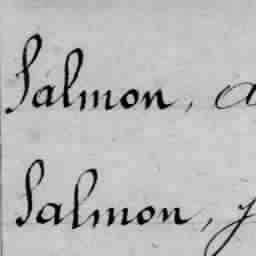 Salmon, a
Salmon, y